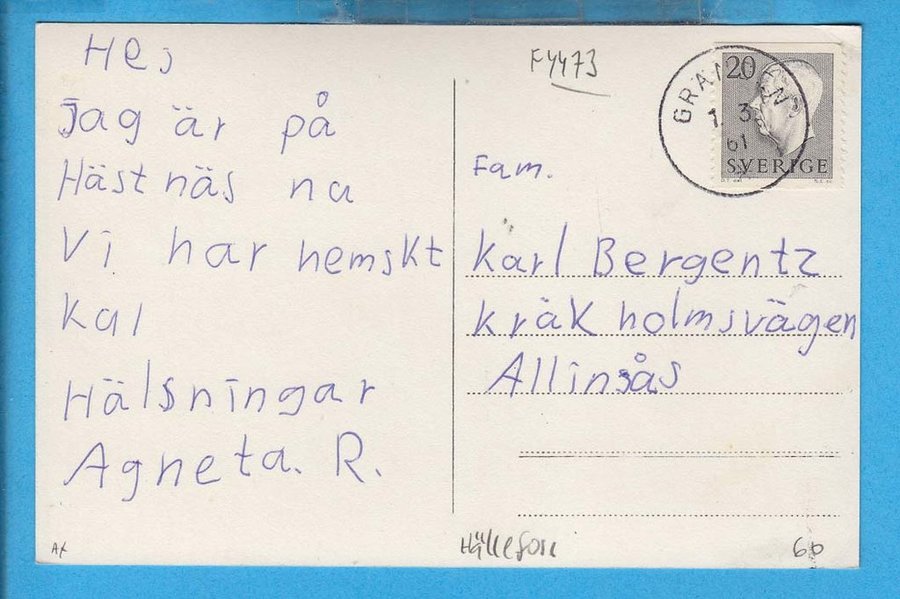 Hej
Jag är på
Hästnäs nu
Vi har hemskt
Kul
Hälsningar
Agneta. R.
F4473
20
1. 3.
61
SVERIGE
Fam.
Karl Bergentz
kräk holmsvägen
Allinsås
Ax
60